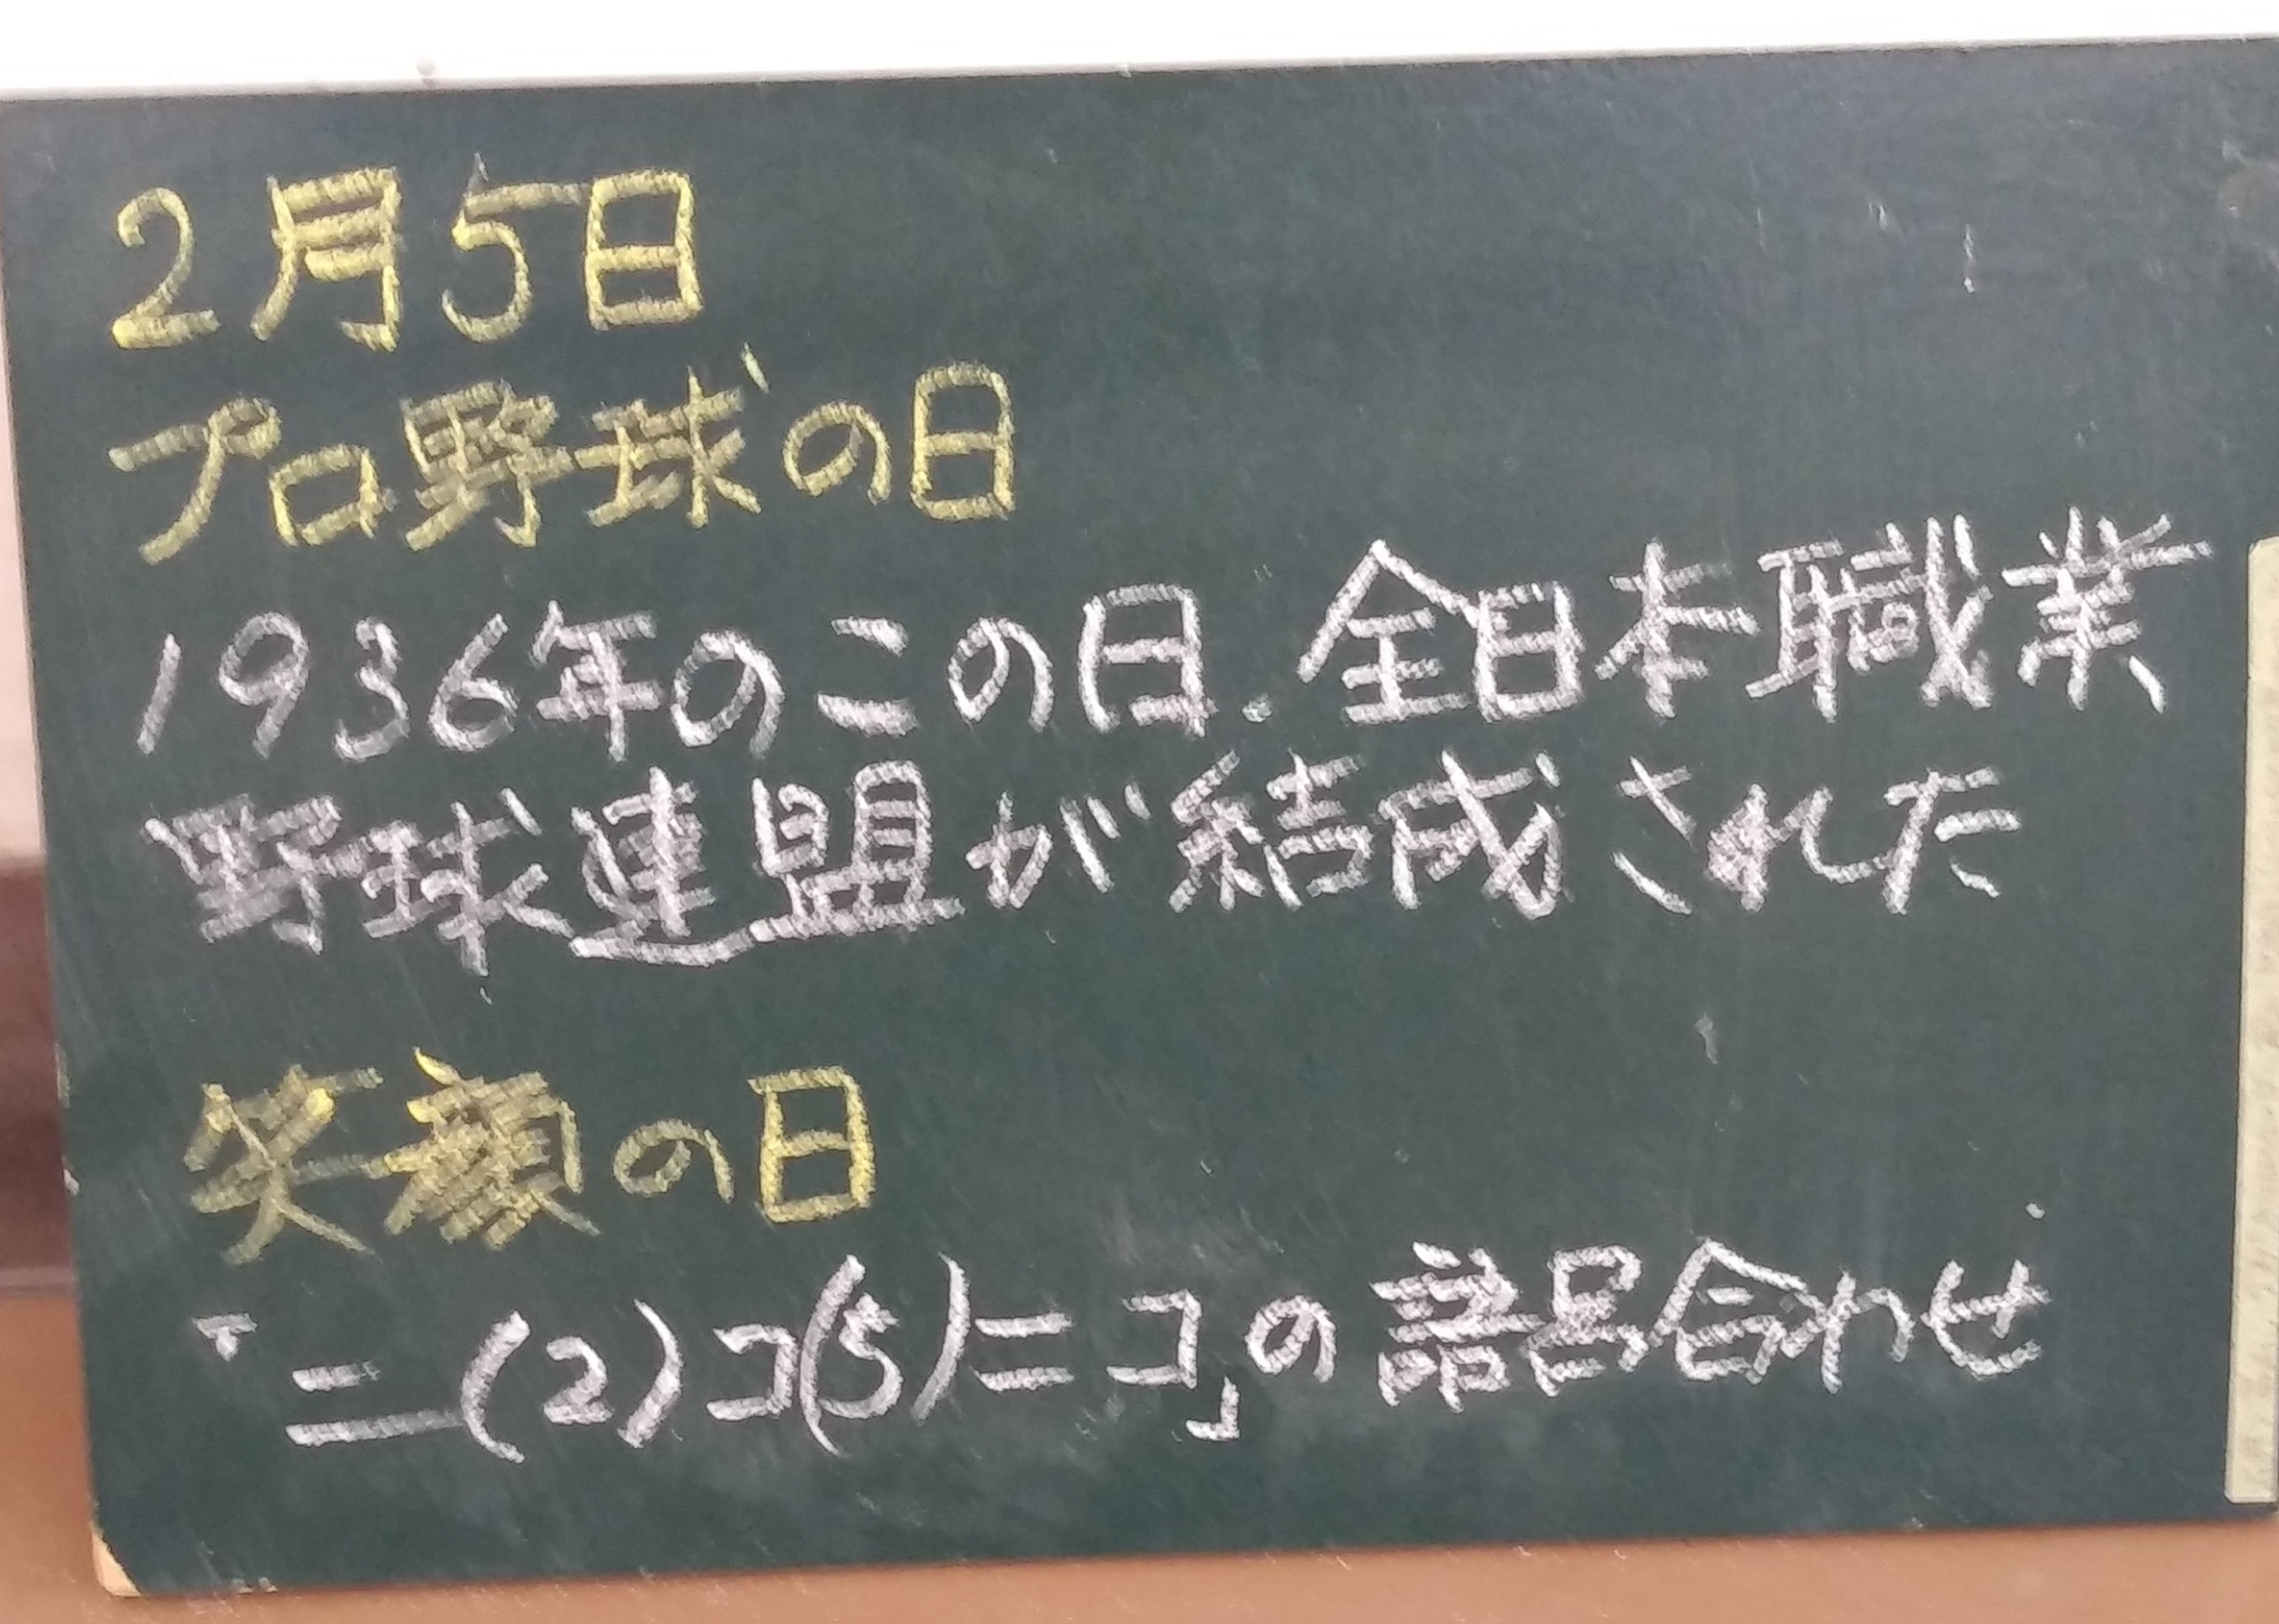 2月5日
プロ野球の日
1936年のこの日、全日本職業
野球連盟が結成された
笑顔の日
「ニ(2)コ(5)ニコ」の語呂合わせ